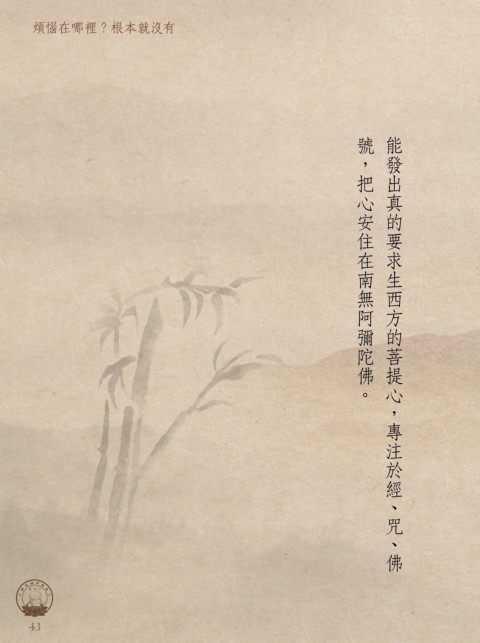 煩惱在哪裡？根本就沒有
能發出真的要求生西方的菩提心，專注於經、咒、佛
號，把心安住在南無阿彌陀佛。
43